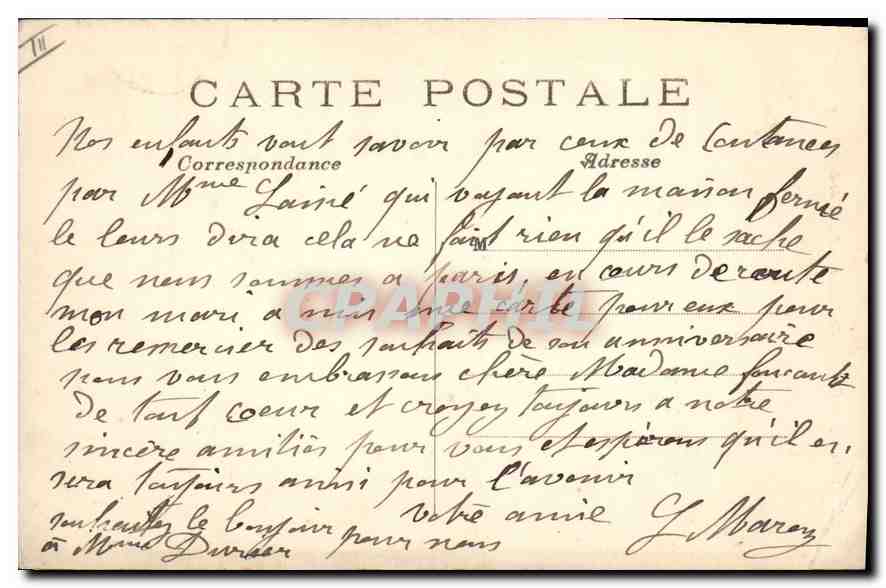 III
CARTE POSTALE
Nos enfants vont savoir par ceux de Coutances
Correspondance Adresse
par Mme Lainé qui voyant la maison fermé
le leurs dira cela ne fait rien qu'il le sache
M
que nous sommes a paris, en cours de route
mon mari a mis une carte pour eux pour
les remercier des souhaits de son anniversaire
nous vous embrassons chère Madame
de tout coeur et croyez toujours a notre
sincère amitiés pour vous et espérons qu'il en
sera toujours ainsi pour l'avenir
souhaitez le bonjour votre amie
à Mme pour nous
CPAPHIL